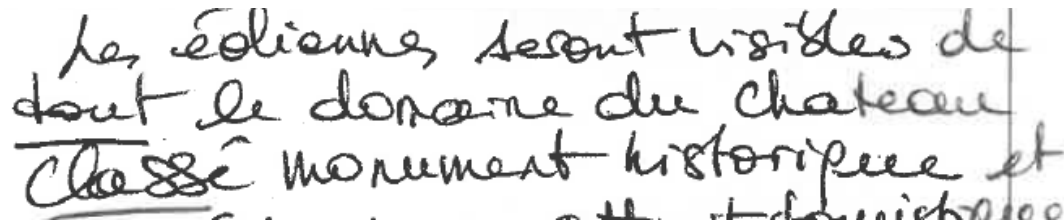 Les éoliennes seront visibles de
tout le domaine du chateau
classé monument historique et